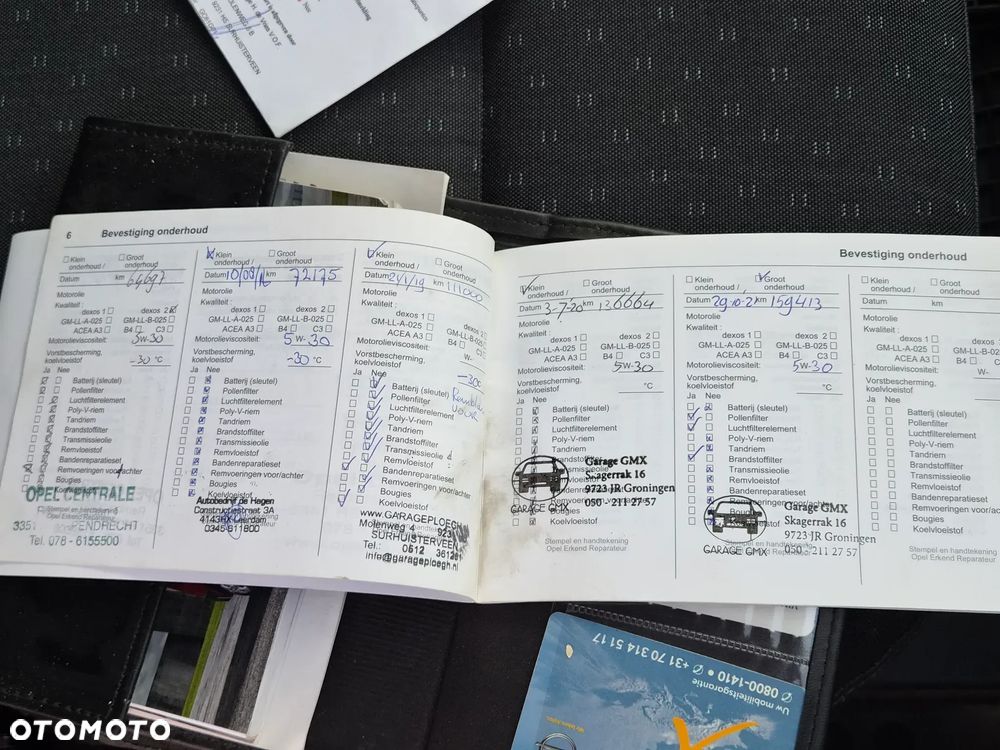 9231 HG SURHUISTERVEEN
6 Bevestiging onderhoud
Klein onderhoud / Groot onderhoud
Datum km 64697
Motorolie
Kwaliteit :
dexos 1 dexos 2
GM-LL-A-025 GM-LL-B-025
ACEA A3 B4 C3
Motorolieviscositeit: 5W-30
Vorstbescherming, koelvloeistof -30 °C
Ja Nee
Batterij (sleutel)
Pollenfilter
Luchtfilterelement
Poly-V-riem
Tandriem
Brandstoffilter
Transmissieolie
Remvloeistof
Bandenreparatieset
Remvoeringen voor/achter
Bougies
OPEL CENTRALE
PENDRECHT
Tel. 078 - 6155500
Klein onderhoud / Groot onderhoud
Datum 10/08/16 km 72175
Motorolie
Kwaliteit :
dexos 1 dexos 2
GM-LL-A-025 GM-LL-B-025
ACEA A3 B4 C3
Motorolieviscositeit: 5W-30
Vorstbescherming, koelvloeistof -30 °C
Ja Nee
Batterij (sleutel)
Pollenfilter
Luchtfilterelement
Poly-V-riem
Tandriem
Brandstoffilter
Transmissieolie
Remvloeistof
Bandenreparatieset
Remvoeringen voor/achter
Bougies
Koelvloeistof
Autobedrijf de Hagen
Constructiestraat 3A
Leerdam
0345-611800
Klein onderhoud / Groot onderhoud
Datum 24/1/19 km 111000
Motorolie
Kwaliteit :
dexos 1 dexos 2
GM-LL-A-025 GM-LL-B-025
ACEA A3 B4 C3
Motorolieviscositeit: W-
Vorstbescherming, koelvloeistof -30C
Ja Nee
Batterij (sleutel)
Pollenfilter
Luchtfilterelement
Poly-V-riem
Tandriem
Brandstoffilter
Transmissieolie
Remvloeistof
Bandenreparatieset
Remvoeringen voor/achter
Bougies
Koelvloeistof
www.GARAGEPLOEGH
Molenweg 4
SURHUISTERVEEN
Tel.: 0512 361291
info@garageploegh.nl
Bevestiging onderhoud
Klein onderhoud / Groot onderhoud
Datum 3-7-20 km 136664
Motorolie
Kwaliteit:
dexos 1 dexos 2
GM-LL-A-025 GM-LL-B-025
ACEA A3 B4 C3
Motorolieviscositeit: 5W-30
Vorstbescherming, koelvloeistof °C
Ja Nee
Batterij (sleutel)
Pollenfilter
Luchtfilterelement
Poly-V-riem
Tandriem
Brandstoffilter
Garage GMX
Skagerrak 16
9723 JR Groningen
050 - 211 27 57
GARAGE GMX
Bougies
Koelvloeistof
Stempel en handtekening
Opel Erkend Reparateur
Klein onderhoud / Groot onderhoud
Datum 29-10-21 km 159413
Motorolie
Kwaliteit:
dexos 1 dexos 2
GM-LL-A-025 GM-LL-B-025
ACEA A3 B4 C3
Motorolieviscositeit: 5W-30
Vorstbescherming, koelvloeistof °C
Ja Nee
Batterij (sleutel)
Pollenfilter
Luchtfilterelement
Poly-V-riem
Tandriem
Brandstoffilter
Transmissieolie
Remvloeistof
Bandenreparatieset
Remvoeringen voor/achter
Garage GMX
Skagerrak 16
9723 JR Groningen
050 - 211 27 57
GARAGE GMX
Stempel en handtekening
Opel Erkend Reparateur
Klein onderhoud / Groot onderhoud
Datum km
Motorolie
Kwaliteit:
dexos 1 dexos 2
GM-LL-A-025 GM-LL-B-025
ACEA A3 B4 C3
Motorolieviscositeit: W-
Vorstbescherming, koelvloeistof
Ja Nee
Batterij (sleutel)
Pollenfilter
Luchtfilterelement
Poly-V-riem
Tandriem
Brandstoffilter
Transmissieolie
Remvloeistof
Bandenreparatieset
Remvoeringen voor/achter
Bougies
Koelvloeistof
Stempel en handtekening
Opel Erkend Reparateur
Uw mobiliteitsgarantie
0800-1410 • +31 70 314 51 17
OTOMOTO